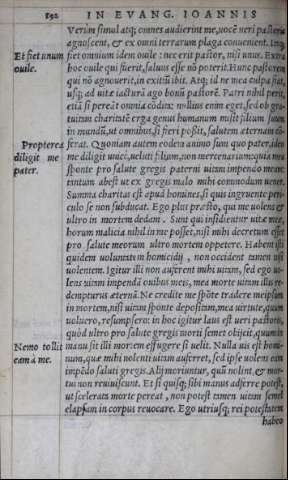 892 IN EVANG. IOANNIS
Verùm simul atq; omnes audierint me, vocē veri pastoris
agnoscent, & ex omni terrarum plaga conuenient. Itaq;
Et fiet unum fiet omnium idem ouile: nec erit pastor, nisi unus. Extra
ouile. hoc ouile qui fuerit, saluus esse nō poterit. Hunc pastorem
qui nō agnouerit, in exitiū ibit. Atq; id ne mea culpa fiat,
usq; ad uitæ iacturā ago bonū pastorē. Patri nihil perit,
etiā si pereāt omnia cōdita: nullius enim eget, sed ob gra-
tuitam charitatē erga genus humanum misit filium suum
in mundū, ut omnibus, si fieri possit, salutem æternam cō-
Propterea ferat. Quoniam autem eodem animo sum quo pater, ideo
diligit me me diligit unicè, ueluti filium, non mercenarium: quia mea
pater. sponte pro salute gregis paterni uitam impendo meam:
tantum abest ut ex gregis malo mihi commodum uener.
Summa charitas est apud homines, si quis ingruente peri-
culo se non subducat. Ego plus præsto, qui me uolens &
ultro in mortem dedam. Sunt qui insidientur uitæ meæ,
horum malicia nihil in me posset, nisi mihi decretum esset
pro salute meorum ultro mortem oppetere. Habent isti
quidem uoluntatem homicidij, non occident tamen nisi
uolentem. Igitur illi non auferent mihi uitam, sed ego uo-
lens uitam impendā ouibus meis, mea morte uitam illis re-
dempturus æternā. Ne credite me spōte tradere meipsum
in mortem, nisi uitam sponte depositam, mea uirtute, quum
uoluero, resumpsero: in hoc igitur latus est ueri pastoris,
quòd ultro pro salute gregis morti semet obijcit, quum in
Nemo tollit manu sit illi mortem effugere si uelit. Nulla uis est homi-
eam à me. num, quæ mihi nolenti uitam auferret, sed ipse uolens eam
impēdo saluti gregis. Alij moriuntur, quū nolint, & mor-
tui non reuiuiscunt. Et si quisq; sibi manus adferre potest,
ut scelerata morte pereat, non potest tamen uitam semel
elapsam in corpus reuocare. Ego utriusq; rei potestatem
habeo